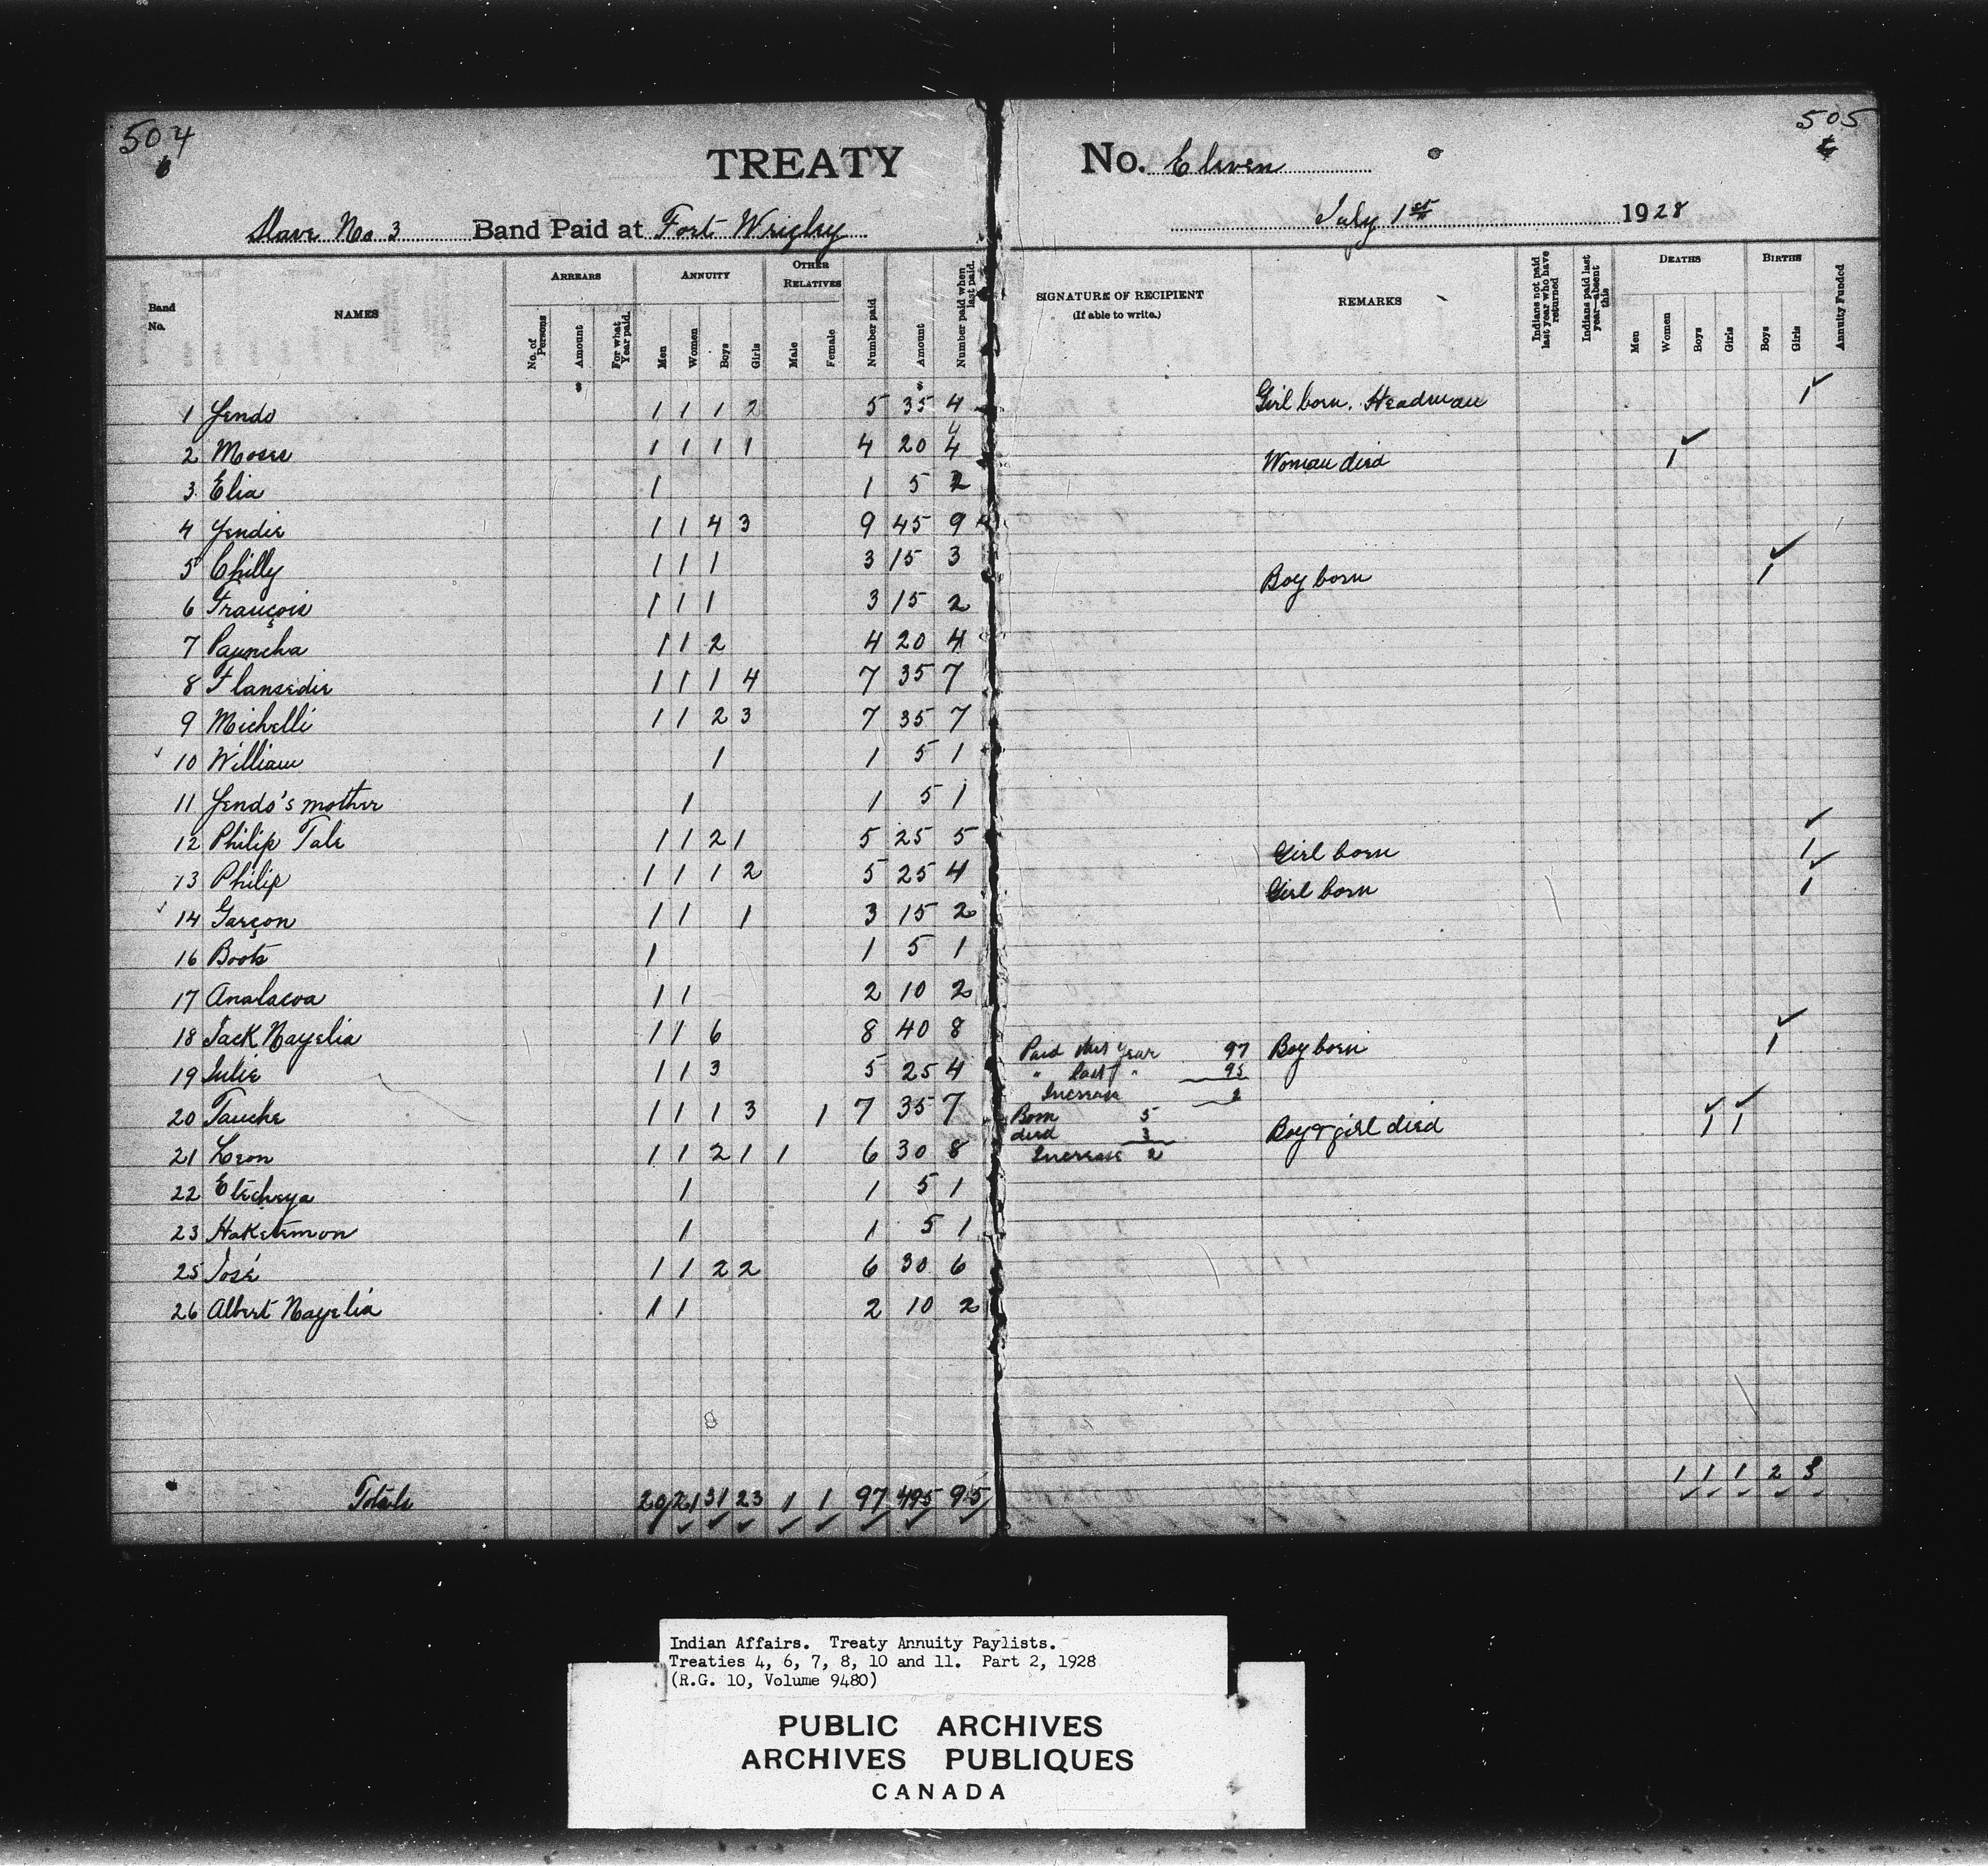 504
505
TREATY No. Eleven
Slave No. 3 Band Paid at Fort Wrigley July 1st 1928
Band No. NAMES ARREARS ANNUITY OTHER RELATIVES Number paid Amount Number paid when last paid. SIGNATURE OF RECIPIENT (If able to write.) REMARKS Indians not paid last year who have returned Indians paid last year—absent this DEATHS BIRTHS Annuity Funded
No. of Persons Amount For what Year paid. Men Women Boys Girls Male Female Men Women Boys Girls Boys Girls
1 Yendo 1 1 1 2 5 35 4 Girl born. Headman 1
2 Moses 1 1 1 1 4 20 4
3 Elia 1 1 5 2 Woman died 1
4 Yendie 1 1 4 3 9 45 9
5 Chilly 1 1 1 3 15 3
6 François 1 1 1 3 15 2 Boy born 1
7 Pauncha 1 1 2 4 20 4
8 Flansedie 1 1 1 4 7 35 7
9 Michelli 1 1 2 3 7 35 7
10 William 1 1 5 1
11 Yendo's mother 1 1 5 1
12 Philip Tale 1 1 2 1 5 25 5
13 Philip 1 1 1 2 5 25 4 Girl born 1
14 Garçon 1 1 1 3 15 2 Girl born 1
16 Boots 1 1 5 1
17 Analacoa 1 1 2 10 2
18 Jack Nayelia 1 1 6 8 40 8
19 Julie 1 1 3 5 25 4 Boy born 1
20 Tauche 1 1 1 3 1 7 35 7
21 Leon 1 1 2 1 1 6 30 8 Boy & girl died 1 1
22 Etecheya 1 1 5 1
23 Haketemon 1 1 5 1
25 José 1 1 2 2 6 30 6
26 Albert Nayelia 1 1 2 10 2
Paid this year 97
" last " 95
Increase 2
Born 5
died 3
Increase 2
Totals 20 21 31 23 1 1 97 495 95 1 1 1 2 3
Indian Affairs. Treaty Annuity Paylists.
Treaties 4, 6, 7, 8, 10 and 11. Part 2, 1928
(R.G. 10, Volume 9480)
PUBLIC ARCHIVES
ARCHIVES PUBLIQUES
CANADA